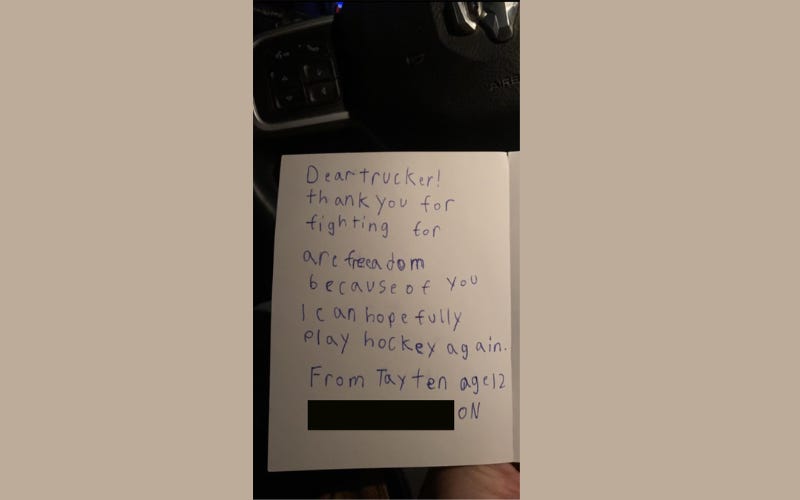 AIRB
Dear trucker!
thank you for
fighting for
are freeadom
because of you
I can hopefully
play hockey again.
From Tayten age 12
ON